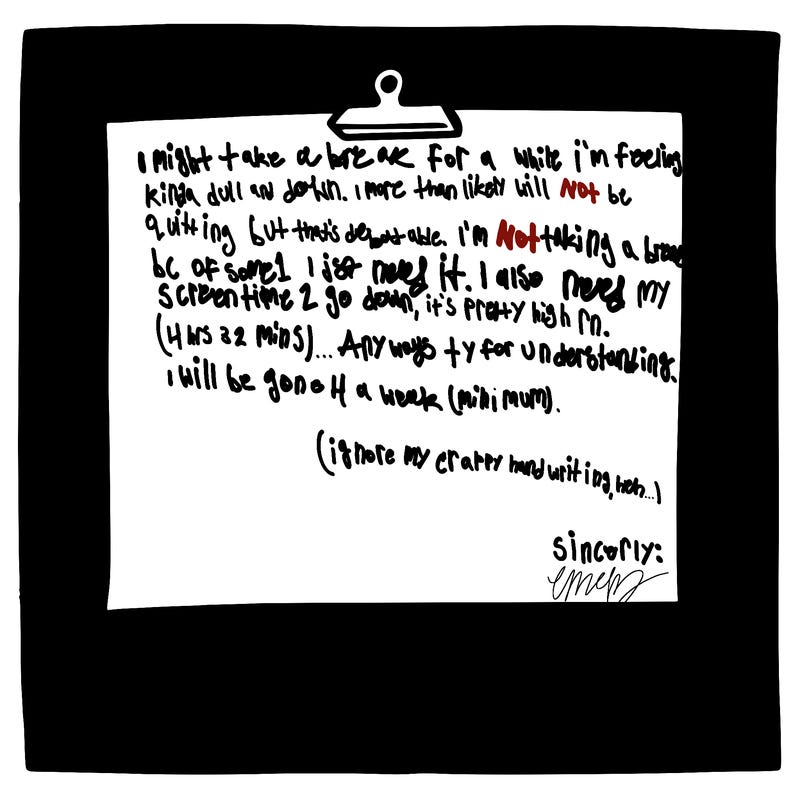 I might take a break for a while i'm feeling
kinda dull and down. I more than likely will Not be
quitting but that's debatable. I'm Not taking a break
bc of some1 I jst need it. I also need my
screentime 2 go down, it's pretty high rn.
(4 hrs 32 mins)... Anyways ty for understanding.
I will be gone 4 a week (minimum).
(ignore my crappy handwriting, heh...)
sincerly: